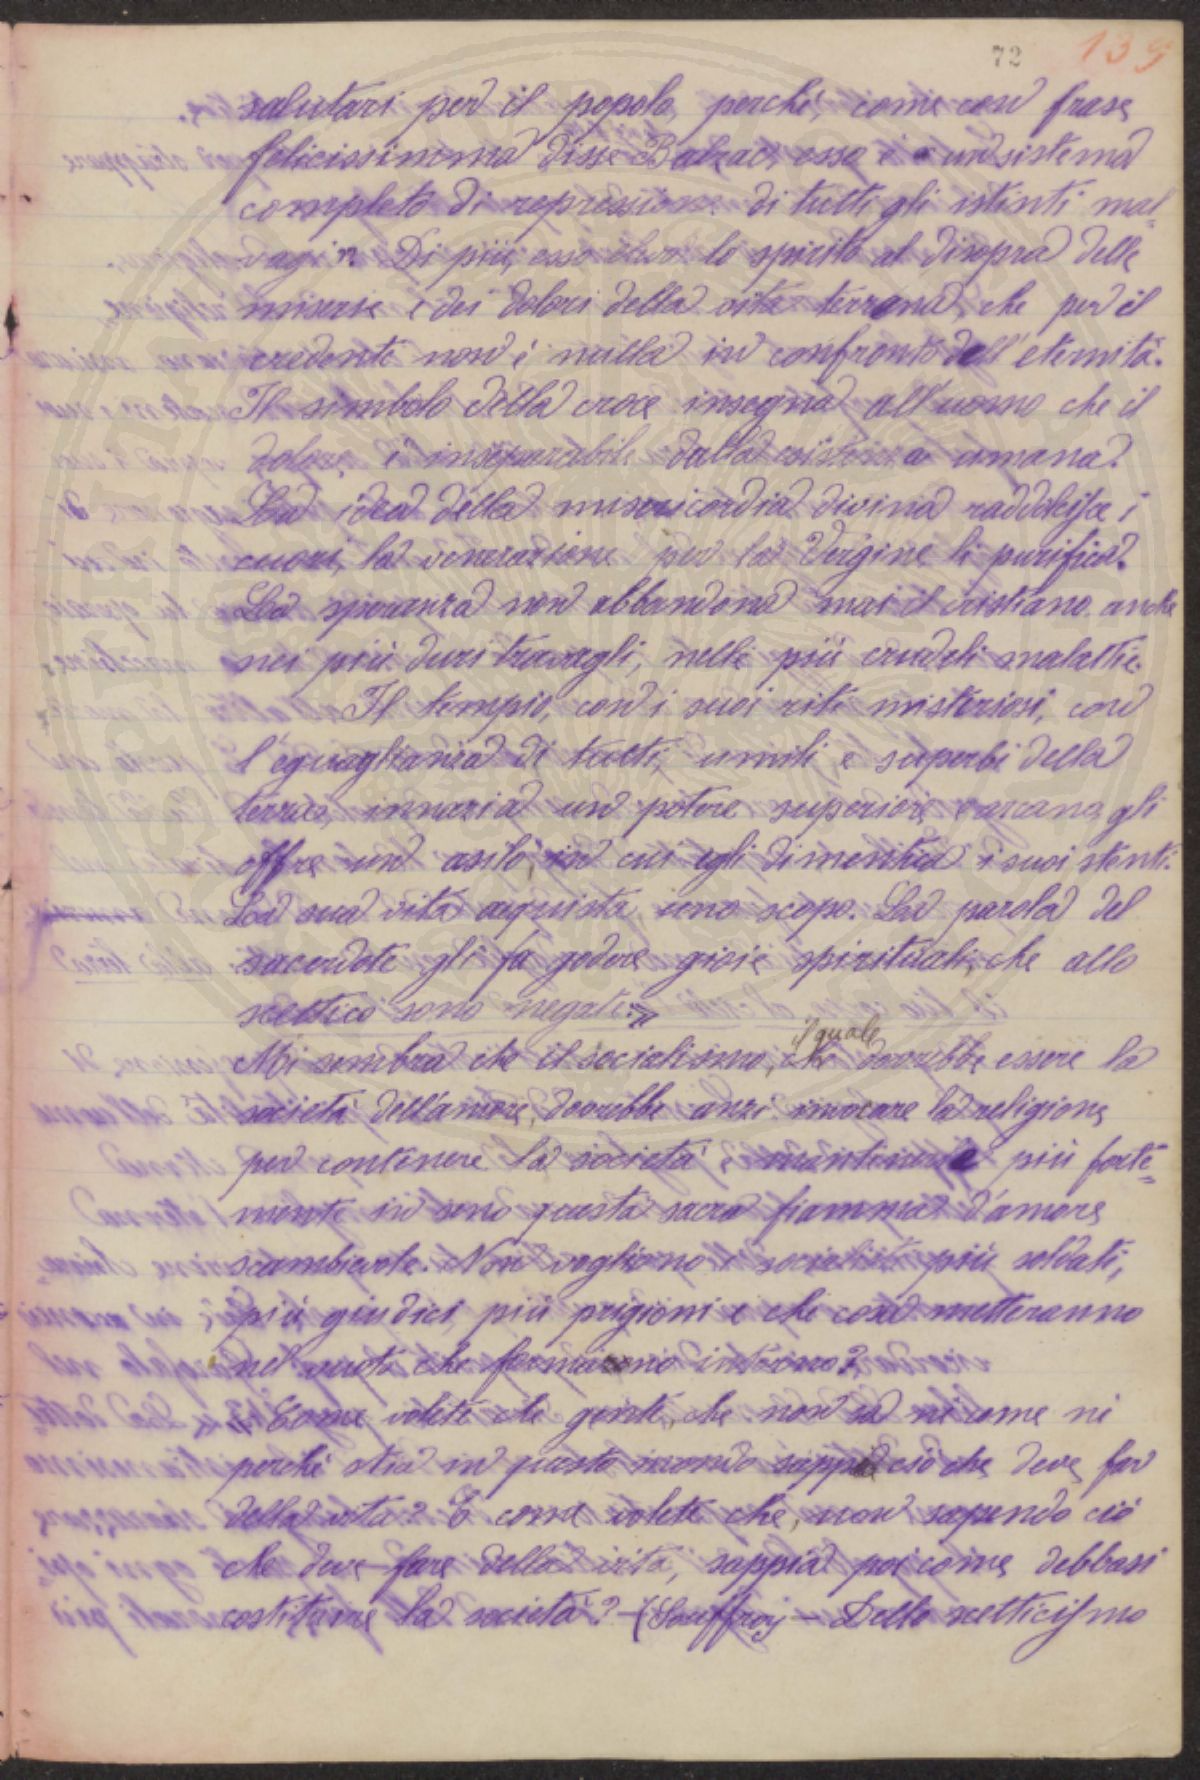 72 139
salutari per il popolo, perché, come con frase
felicissima disse Balzac, esso è « un sistema
completo di repressione di tutti gli istinti mal=
vagi». Di più, esso eleva lo spirito al disopra delle
miserie e dei dolori della vita terrena, che per il
credente non è nulla in confronto dell'eternità.
Il simbolo della croce insegna all'uomo che il
dolore è inseparabile dalla esistenza umana.
La idea della misericordia divina raddolcisce i
cuori, la venerazione per la Vergine li purifica.
La speranza non abbandona mai il cristiano anche
nei più duri travagli, nelle più crudeli malattie.
Il tempio, con i suoi riti misteriosi, con
l'eguaglianza di tutti, umili e superbi della
terra, innanzi a un potere superiore e arcano, gli
offre un asilo, in cui egli dimentica i suoi stenti.
La sua vita acquista uno scopo. La parola del
sacerdote gli fa godere gioie spirituali, che allo
scettico sono negate.»
il quale
Mi sembra che il socialismo, che dovrebbe essere la
società dell'amore, dovrebbe anzi invocare la religione
per contenere la società e mantenere più forte=
mente in seno questa sacra fiamma d'amore
scambievole. Non vogliono i socialisti più soldati,
più giudici, più prigioni e che cosa metteranno
nel vuoto che formarono intorno?
« Come volete che gente, che non sa né come né
perché stia in questo mondo sappia ciò che deve far
della vita? E come volete che, non sapendo ciò
che deve fare della vita, sappia poi come debbasi
costituire la società? - (Jouffroy - Dello scetticismo